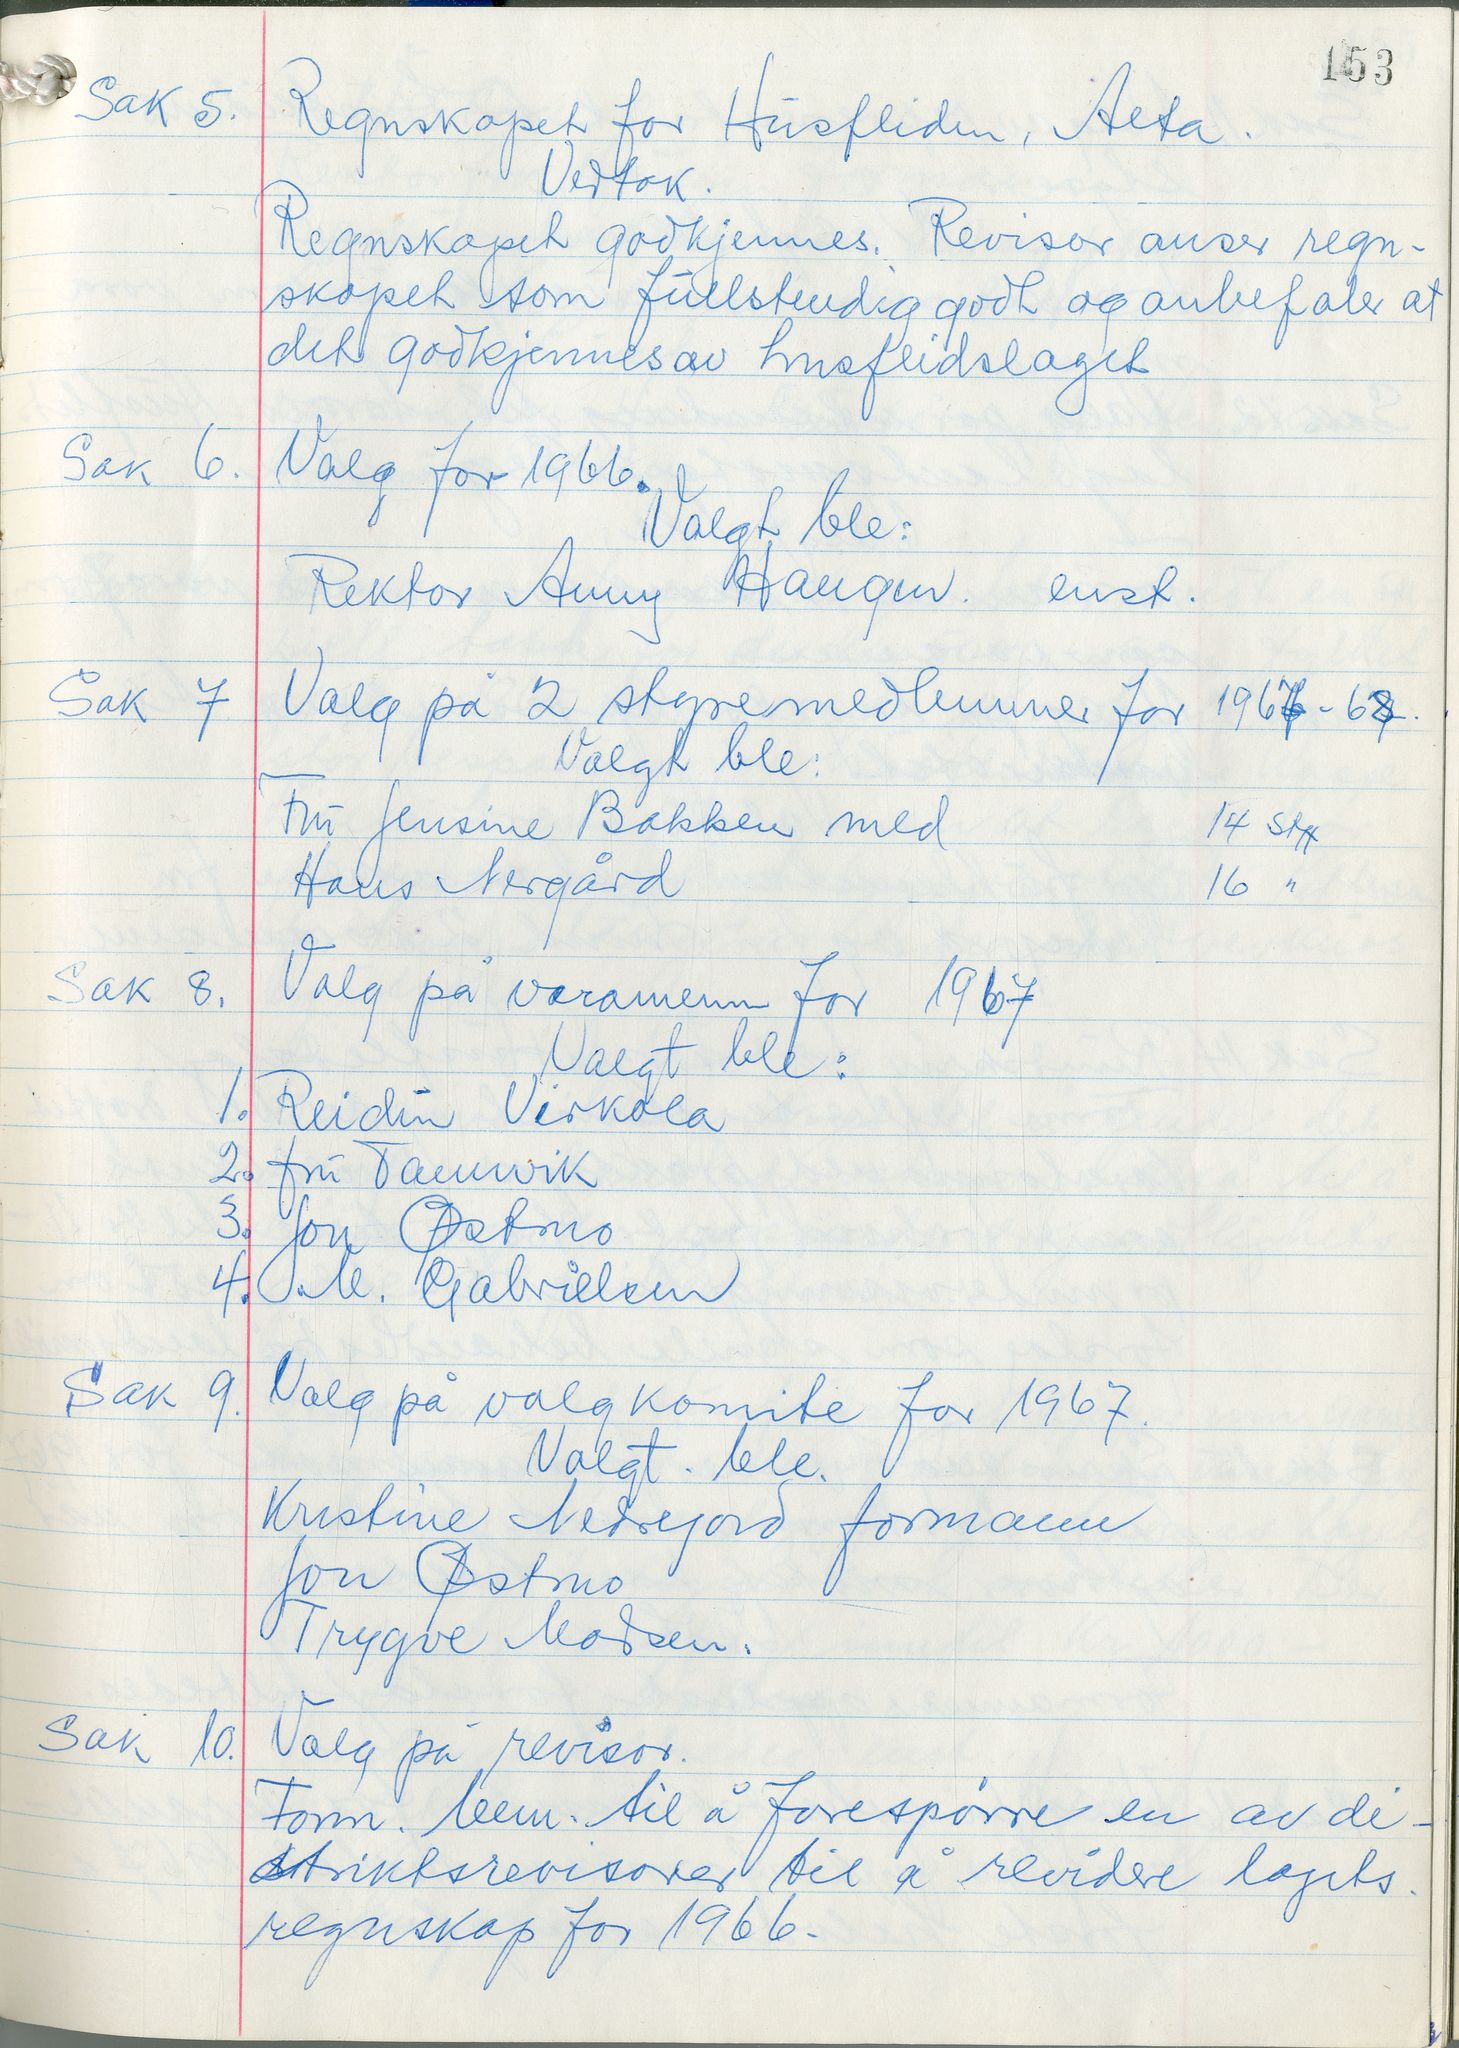 153
Sak 5. Regnskapet for Husfliden, Alta.
Vedtak.
Regnskapet godkjennes. Revisor anser regn-
skapet som fullstendig godt og anbefaler at
det godkjennes av husflidslaget
Sak 6. Valg for 1966.
Valgt ble:
Rektor Anny Haugen. enst.
Sak 7 Valg på 2 styremedlemmer for 1967-68.
Valgt ble:
Fru Jensine Bakken med 14 st
Hans Nergård 16 "
Sak 8. Valg på varamenn for 1967
Valgt ble:
1. Reidun Virkola
2. fru Tannvik
3. Jon Østmo
4. M. Gabrielsen
Sak 9. Valg på valgkomite for 1967.
Valgt. ble.
Kristine Nedregord formann
Jon Østmo
Trygve Madsen.
Sak 10. Valg på revisor.
Form. bem. til å forespørre en av di-
striktsrevisorer til å revidere lagets.
regnskap for 1966.